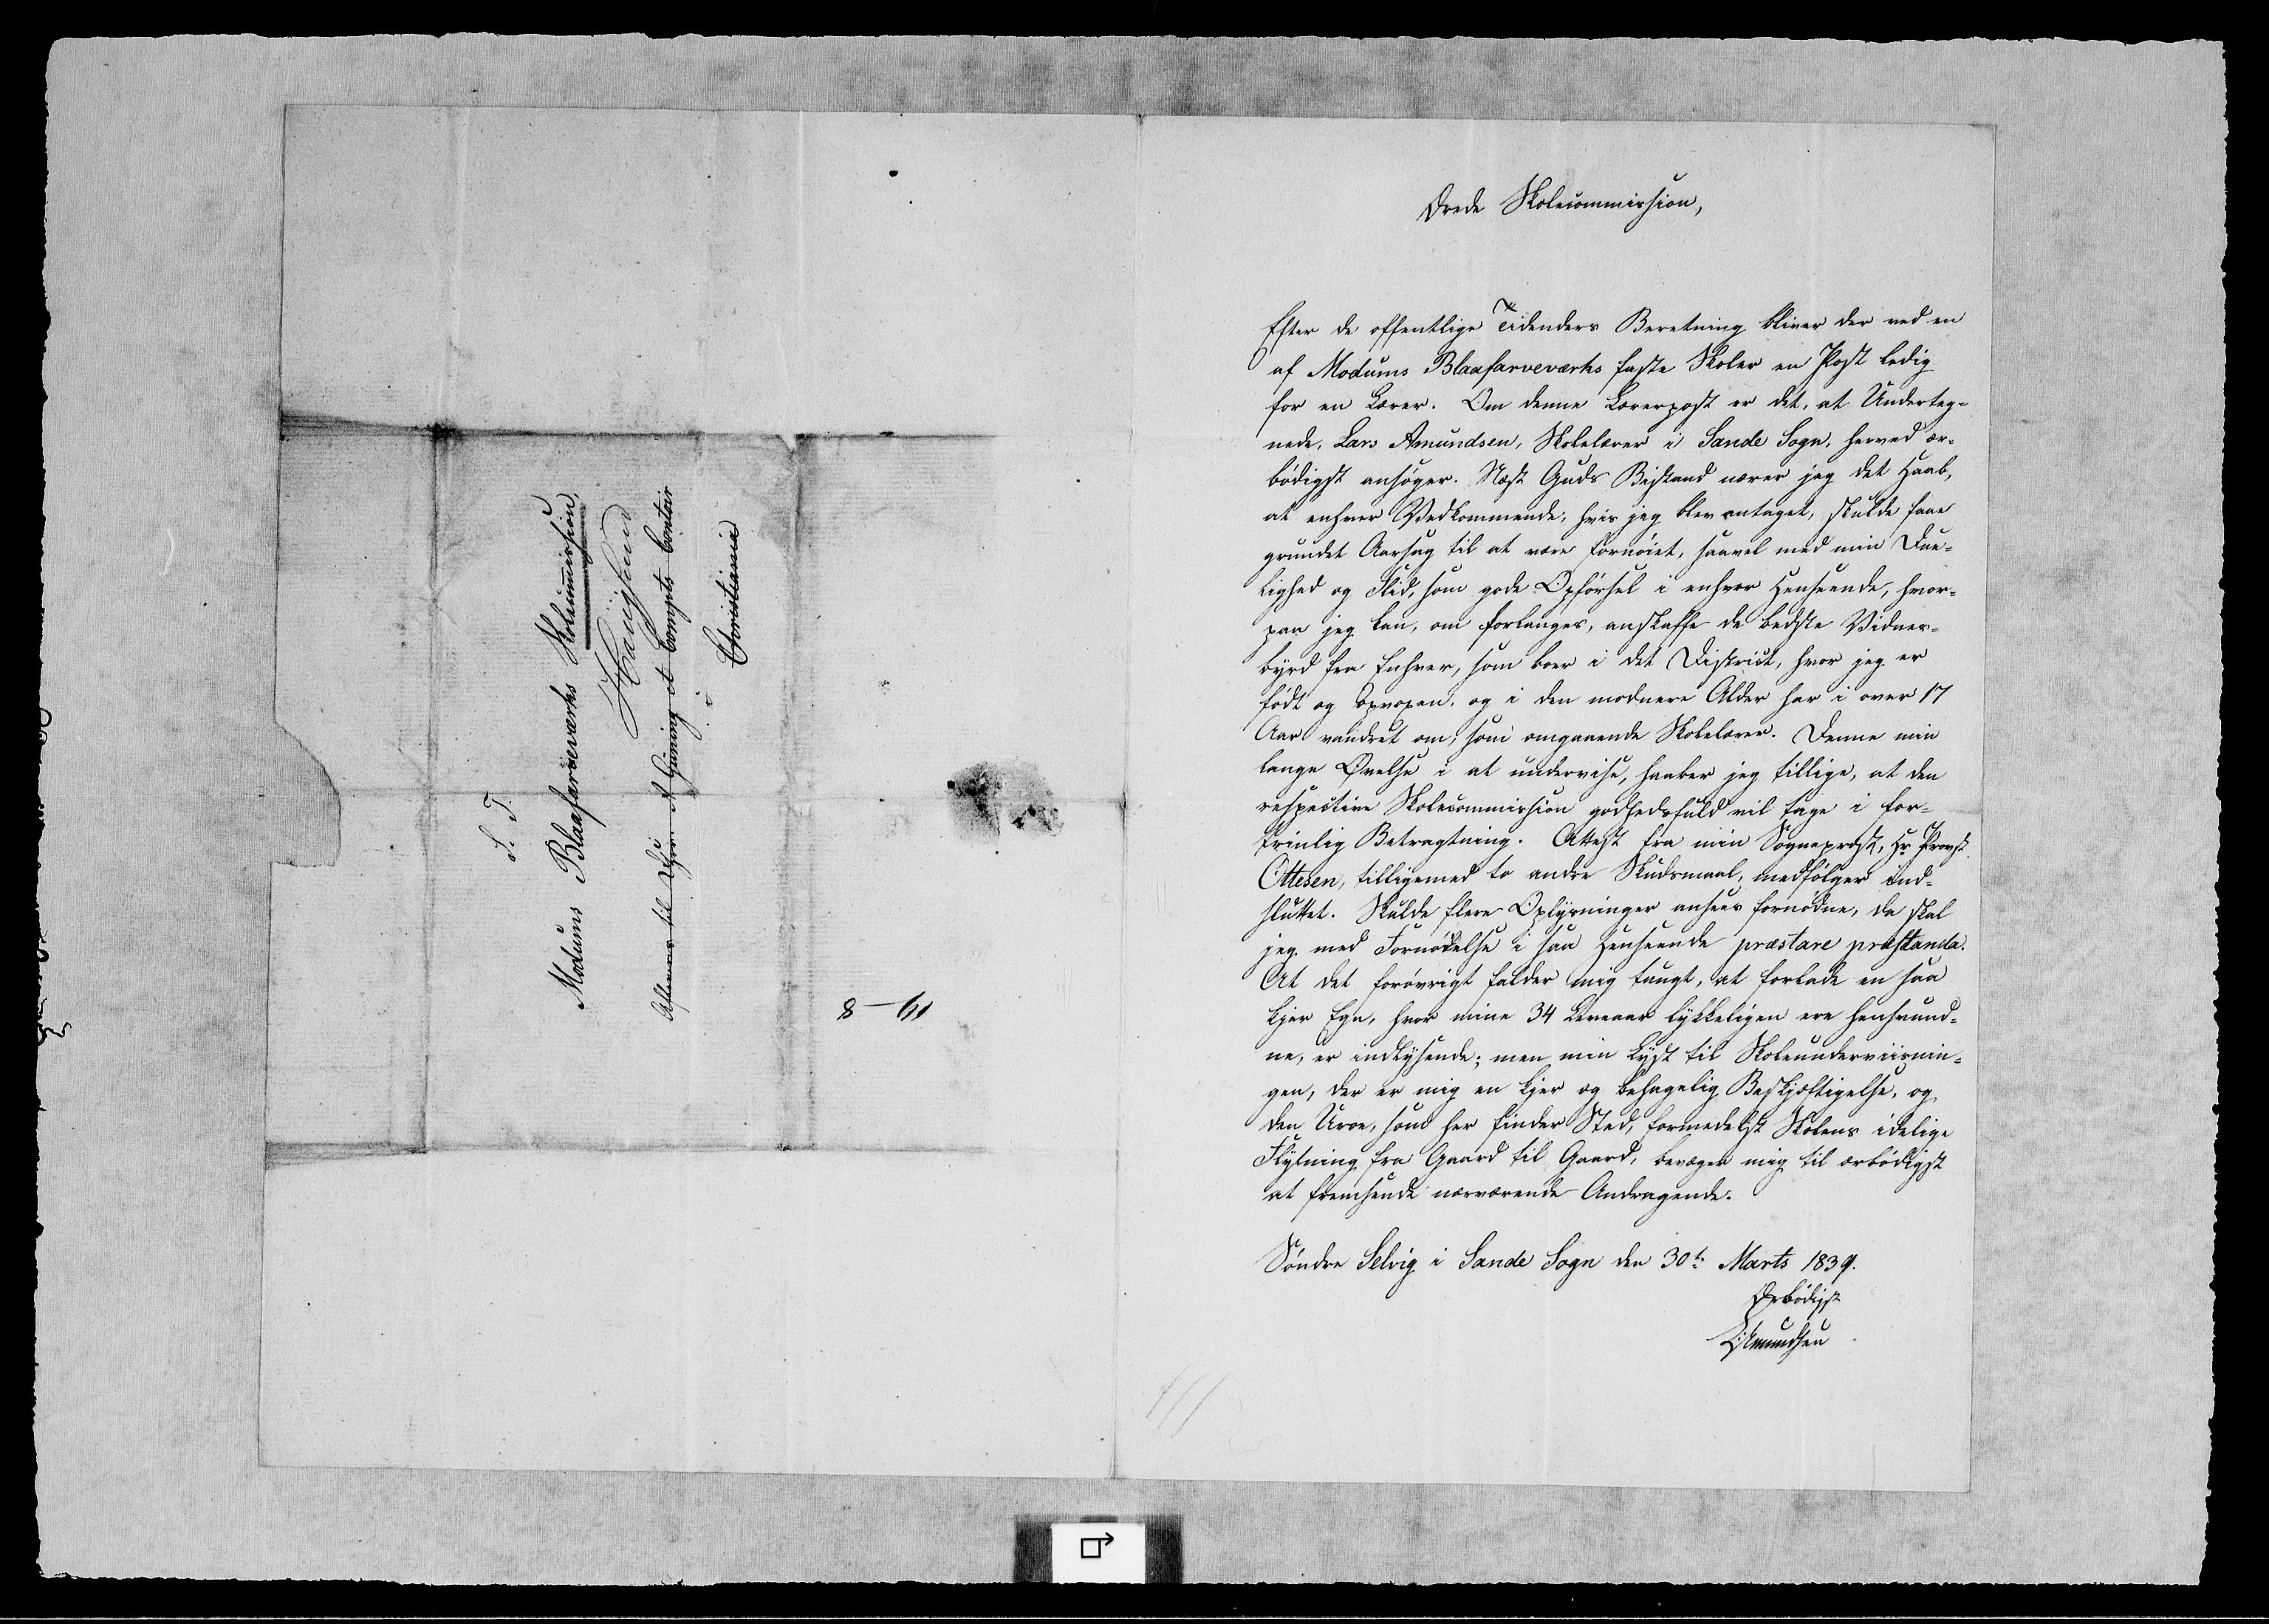 S. T.
Modums Blaafarveværks Skolecommission
Haugsund
Afleveres til Hr. H Gjuning et Compts Contoir
i
Christiania
8 — 61
Ærede Skolecommission,
Efter de offentlige Tidenders Beretning bliver der ved en
af Modums Blaafarveværks faste Skoler en Post ledig
for en Lærer. Om denne Lærerpost er det, at Underteg-
nede, Lars Amundsen, Skolelærer i Sande Sogn, herved ær-
bødigst ansøger. Næst Guds Bistand nærer jeg det Haab,
at enhver Vedkommende, hvis jeg blev antaget, skulde faae
grundet Aarsag til at være fornøiet, saavel med min Due-
lighed og Flid, som gode Opførsel i enhver Henseende, hvor-
paa jeg kan, om forlanges, anskaffe de bedste Vidnes-
byrd fra Enhver, som boer i det District, hvor jeg er
født og opvoxen, og i den modnere Alder har i over 17
Aar vandret om, som omgaaende Skolelærer. Denne min
lange Øvelse i at undervise, haaber jeg tillige, at den
respective Skolecommission godhedsfuld vil tage i for-
trinlig Betragtning. Attest fra min Sognepræst, Hr Provst
Ottesen, tilligemed to andre Skudsmaal, medfølger ind-
sluttet. Skulde flere Oplysninger ansees fornødne, da skal
jeg med Fornøielse i saa Henseende præstare præstanda.
At det forøvrigt falder mig tungt, at forlade en saa
kjær Egn, hvor mine 34 Leveaar lykkeligen ere hensvund-
ne, er indlysende; men min Lyst til Skoleunderviisnin-
gen, der er mig en kjær og behagelig Beskjæftigelse, og
den Uroe, som her finder Sted, formedelst Skolens idelige
Flytning fra Gaard til Gaard, bevæger mig til ærbødigst
at fremsende nærværende Andragende.
Søndre Selvig i Sande Sogn den 30te Marts 1839.
Ærbødigst
L. Amundsen